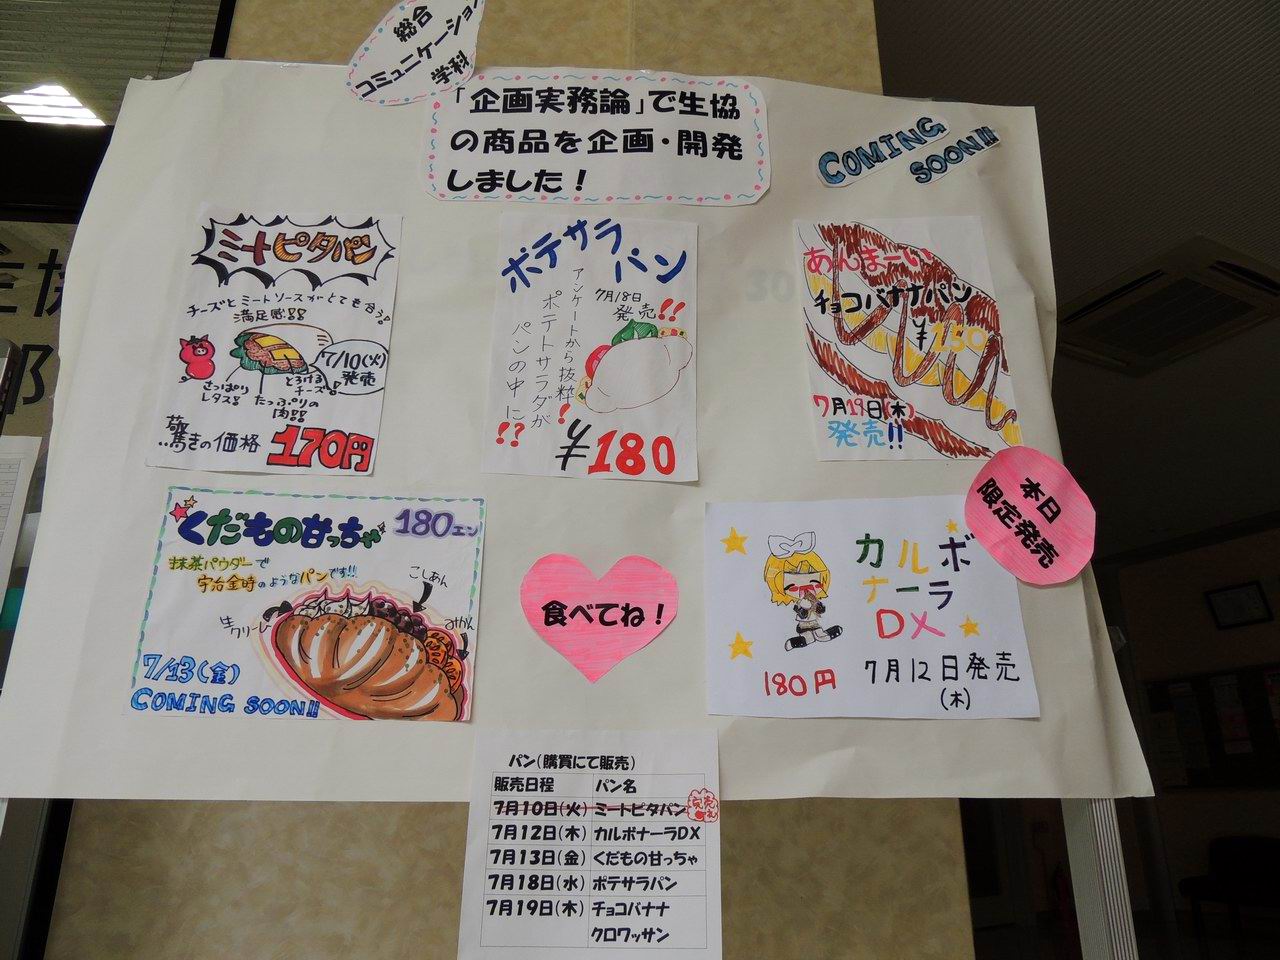 総合
コミュニケーション
学科
「企画実務論」で生協
の商品を企画・開発
しました！
COMING
SOON!!
ミートピタパン
チーズとミートソースがとても合う!
満足感!!
7/10(火)
発売
さっぱり
レタス!
とろける
チーズ!
たっぷりの
肉!!
驚きの価格
170円
ポテサラ
パン
7月18日
発売!!
アンケートから抜粋!
ポテトサラダが
パンの中に!?
¥180
あんまーい
チョコバナナパン
¥150
7月19日(木)
発売!!
くだもの甘っちゃ
180エン
抹茶パウダーで
宇治金時のようなパンです!!
こしあん
生クリーム
みかん
7/13(金)
COMING SOON!!
食べてね！
本日
限定発売
カルボ
ナーラ
DX
180円
7月12日発売
(木)
パン(購買にて販売)
販売日程 パン名
7月10日(火) ミートピタパン 完売
7月12日(木) カルボナーラDX
7月13日(金) くだもの甘っちゃ
7月18日(水) ポテサラパン
7月19日(木) チョコバナナ
クロワッサン